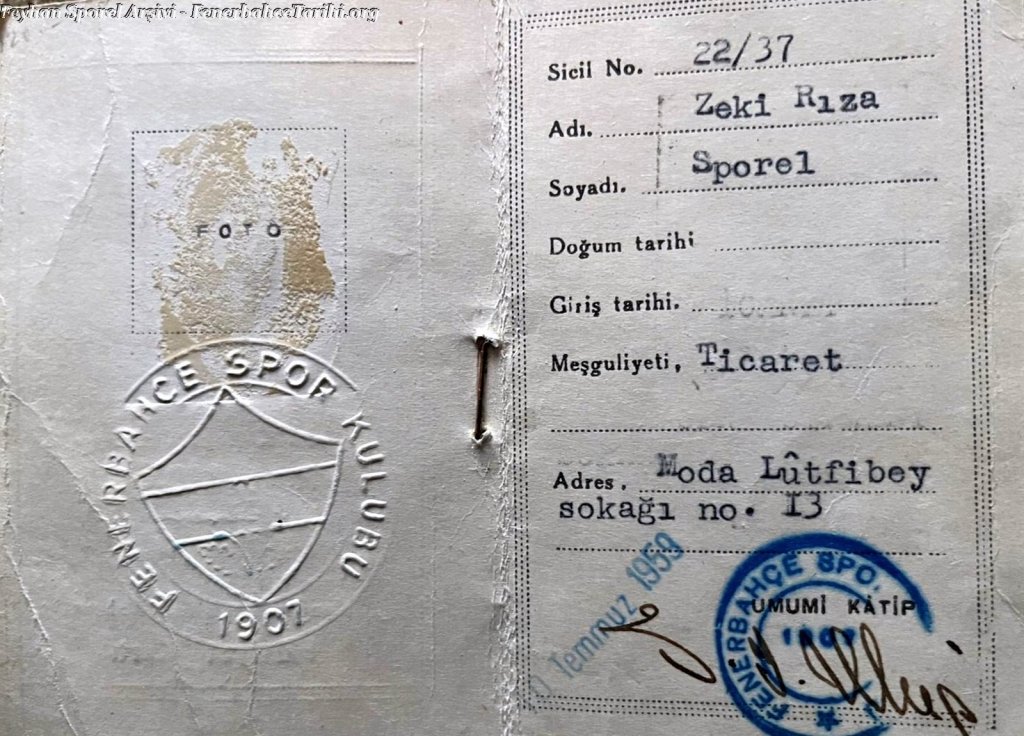 Feyhan Sporel Arşivi - FenerbahceTarihi.org
FOTO
FENERBAHÇE SPOR KULUBU
1907
Sicil No. 22/37
Adı. Zeki Rıza
Soyadı. Sporel
Doğum tarihi
Giriş tarihi.
Meşguliyeti, Ticaret
Adres. Moda Lûtfibey
sokağı no. 13
Temmuz 1959
FENERBAHÇE SPO
UMUMİ KÂTİP
1907